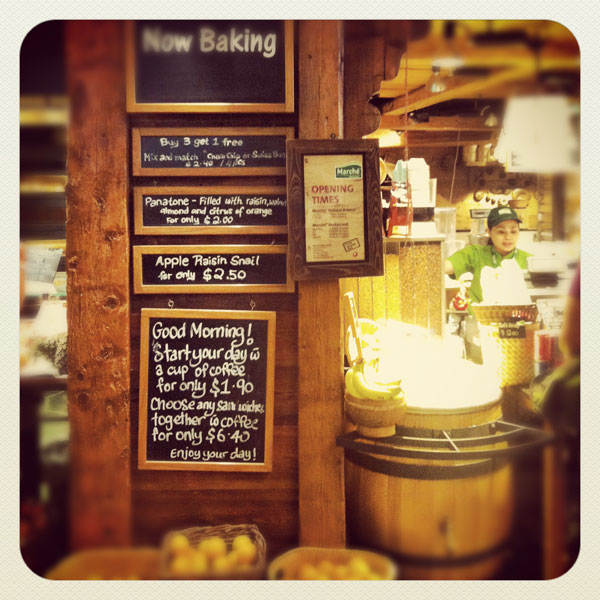 Now Baking
Buy 3 get 1 free
Mix and match "Choco Chip or Swiss Bun
$2.40 / 4 pcs
Panatone - Filled with raisin, walnut
almond and citrus of orange
For only $2.00
Apple Raisin Snail
for only $2.50
Good Morning!
Start your day w
a cup of coffee
for only $1.90
Choose any sandwiches
together w coffee
for only $6.40
Enjoy your day!
Marché
OPENING
TIMES